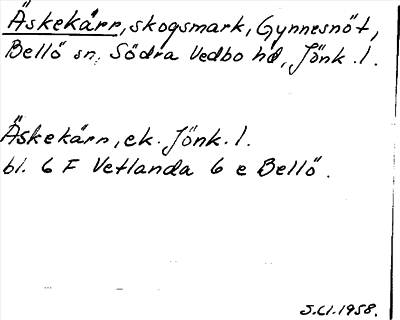 Äskekärr, skogsmark, Gynnesnöt,
Bellö sn, Södra Vedbo hd, Jönk. l.
Äskekärn, ek. Jönk. l.
bl. 6 F Vetlanda 6 e Bellö.
J.Cl. 1958.